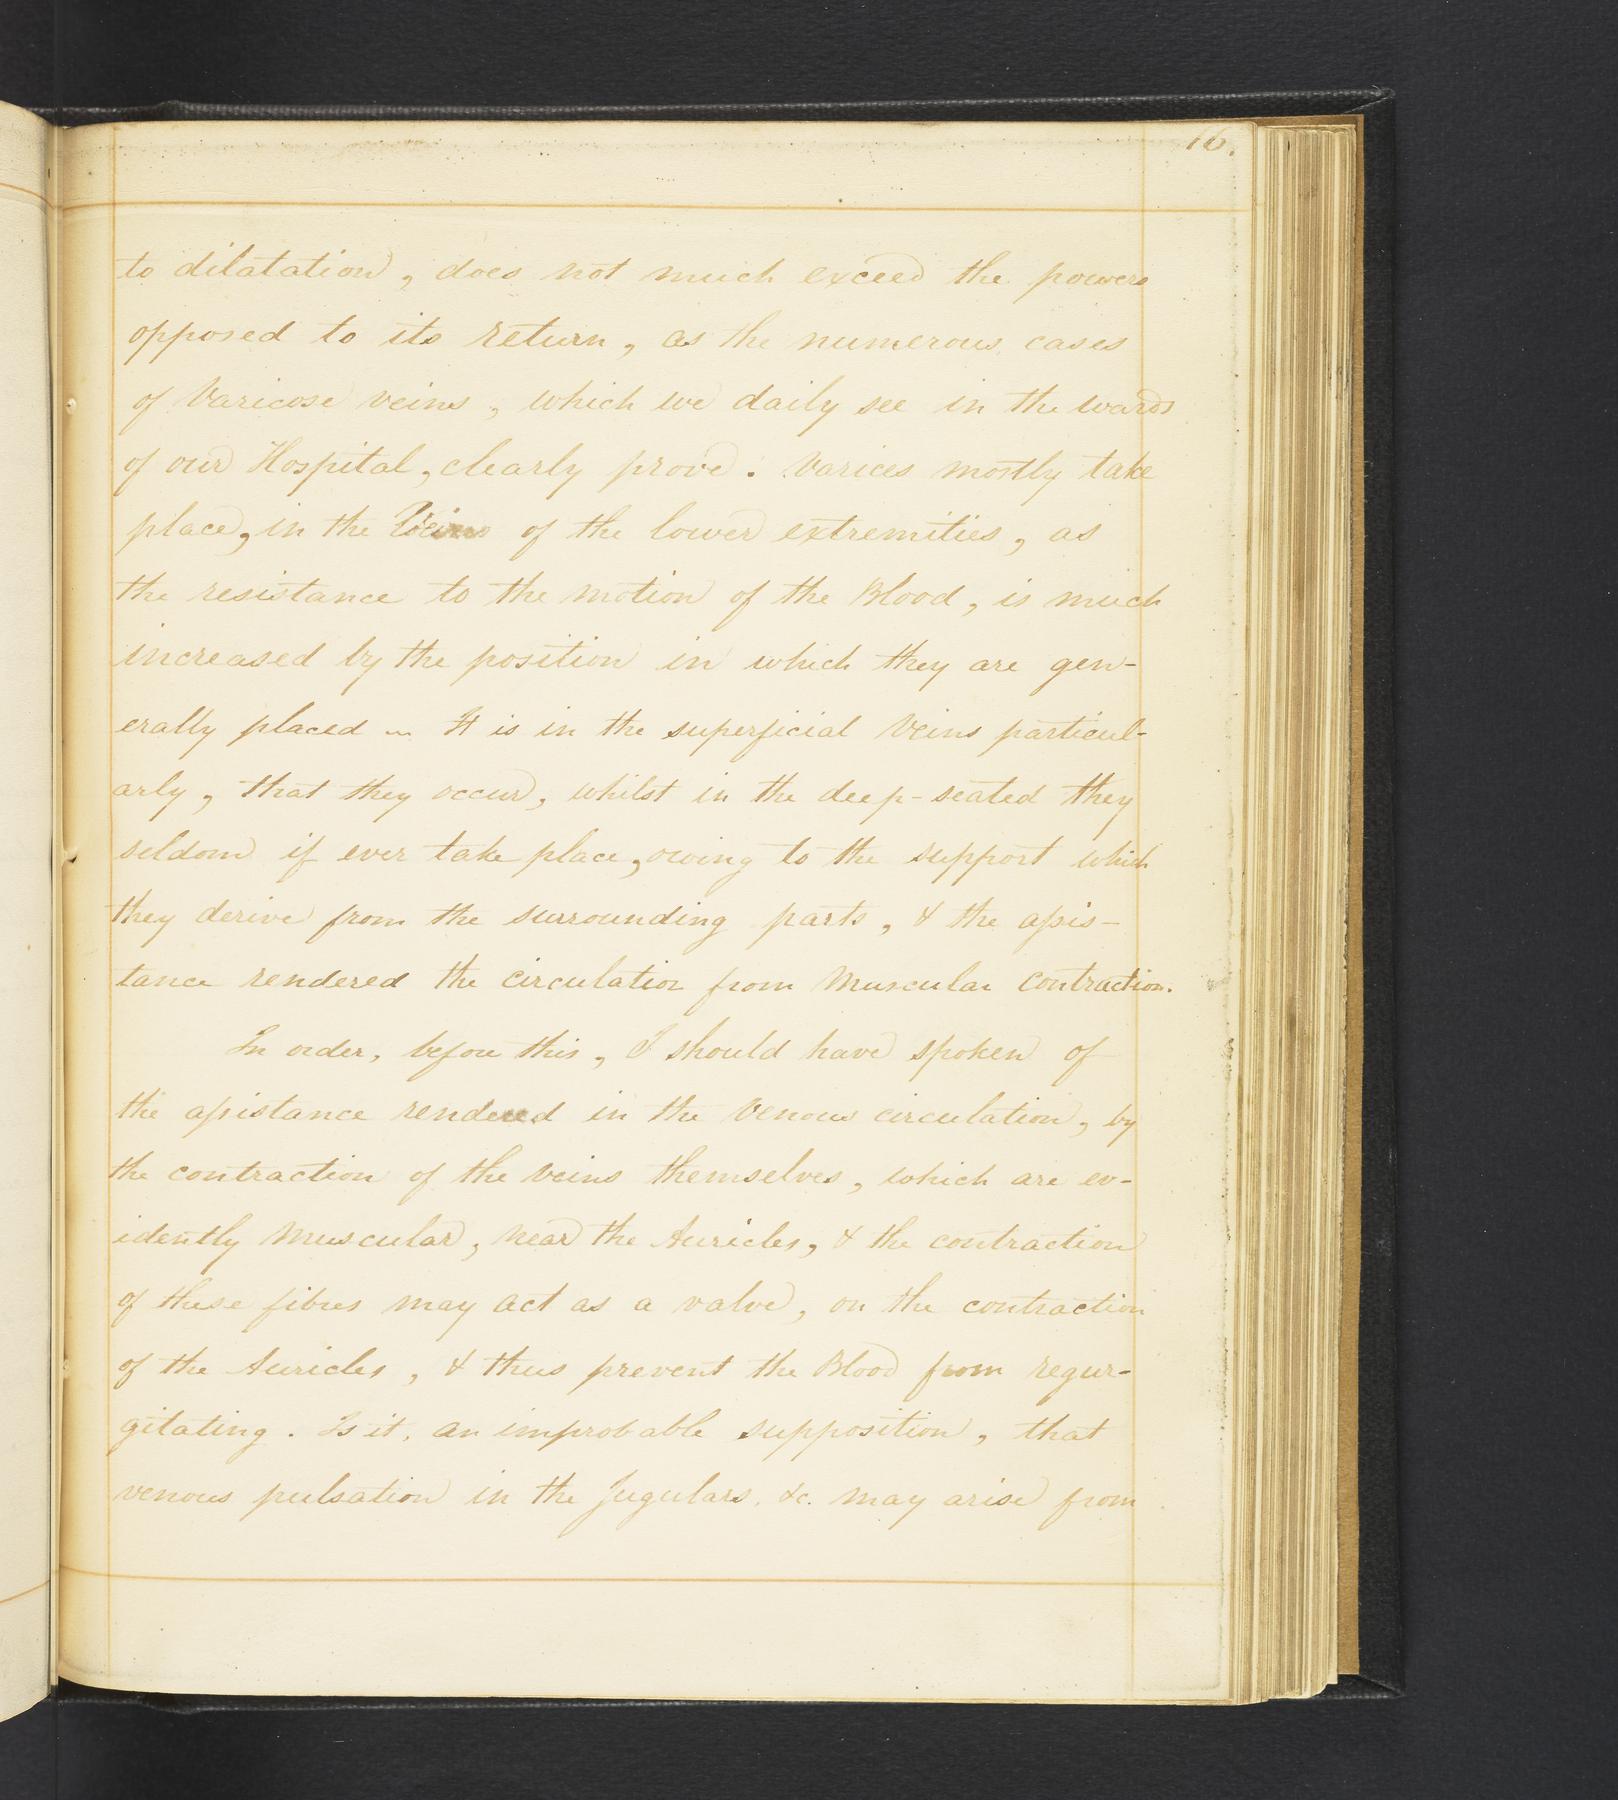 16.
to dilatation, does not much exceed the powers
opposed to its return, as the numerous cases
of Varicose veins, which we daily see in the wards
of our Hospital, clearly prove. Varices mostly take
place, in the Veins of the lower extremities, as
the resistance to the motion of the Blood, is much
increased by the position in which they are gen-
erally placed ~ It is in the superficial Veins particul-
arly, that they occur, whilst in the deep-seated they
seldom if ever take place, owing to the support which
they derive from the surrounding parts, & the assis-
tance rendered the circulation from Muscular contraction.
In order, before this, I should have spoken of
the assistance rendered in the Venous circulation, by
the contraction of the veins themselves, which are ev-
idently Muscular, near the Auricles, & the contraction
of these fibres may act as a valve, on the contraction
of the Auricles, & thus prevent the Blood from regur-
gitating. Is it, an improbable supposition, that
venous pulsation in the Jugulars, &c. may arise from